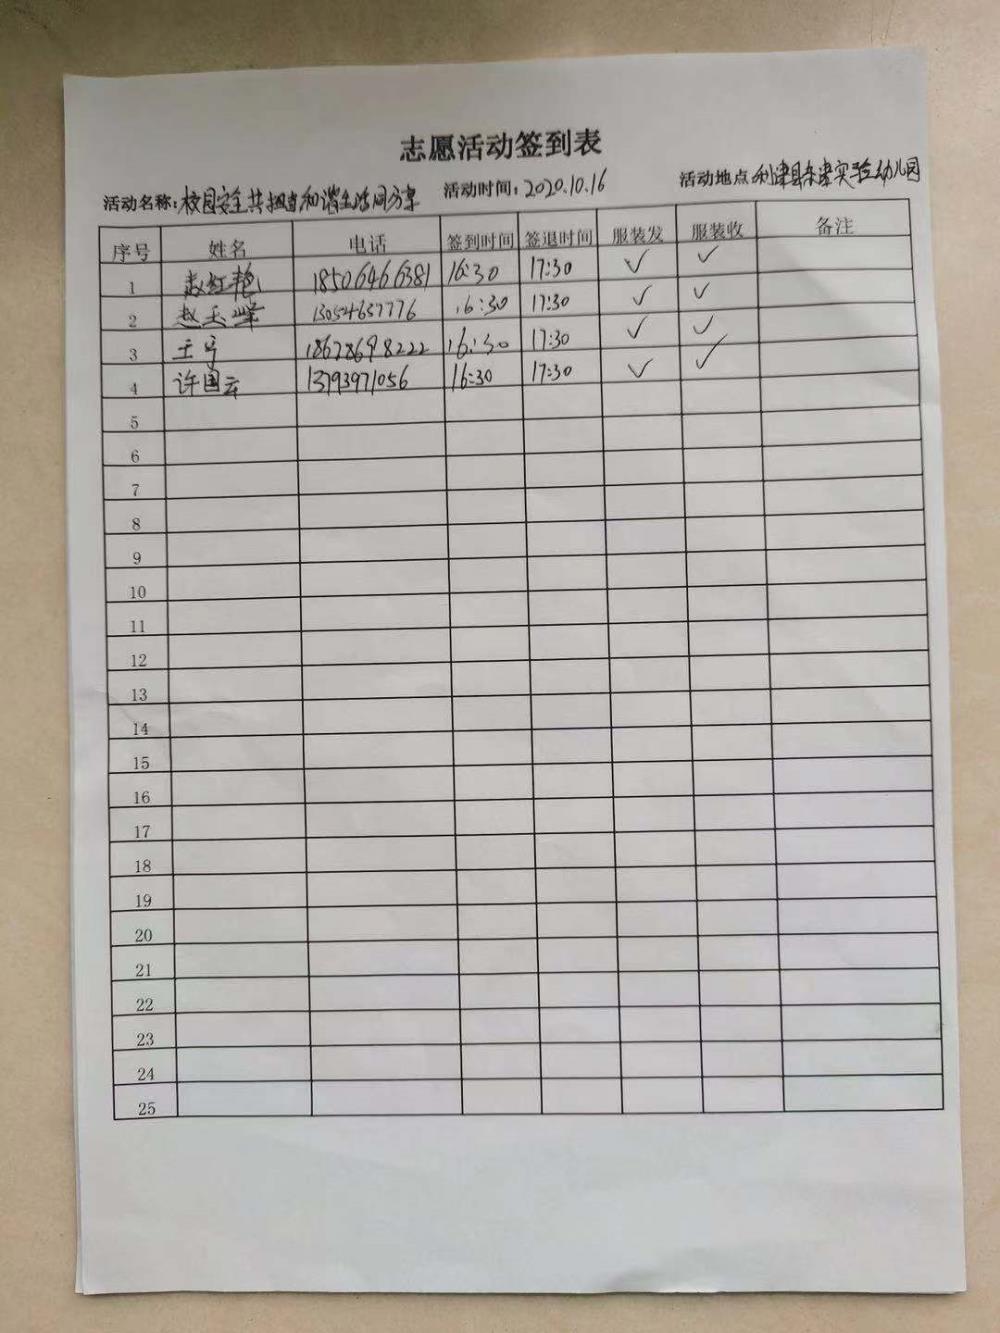 志愿活动签到表
活动名称：校园安全共担当和谐生活同分享 活动时间：2020.10.16 活动地点：利津县东津实验幼儿园
序号 姓名 电话 签到时间 签退时间 服装发 服装收 备注
1 赵红艳 18506466381 16:30 17:30 ✓ ✓
2 赵玉峰 13054657776 16:30 17:30 ✓ ✓
3 王 18678698222 16:30 17:30 ✓ ✓
4 许国云 13793971056 16:30 17:30 ✓ ✓
5
6
7
8
9
10
11
12
13
14
15
16
17
18
19
20
21
22
23
24
25